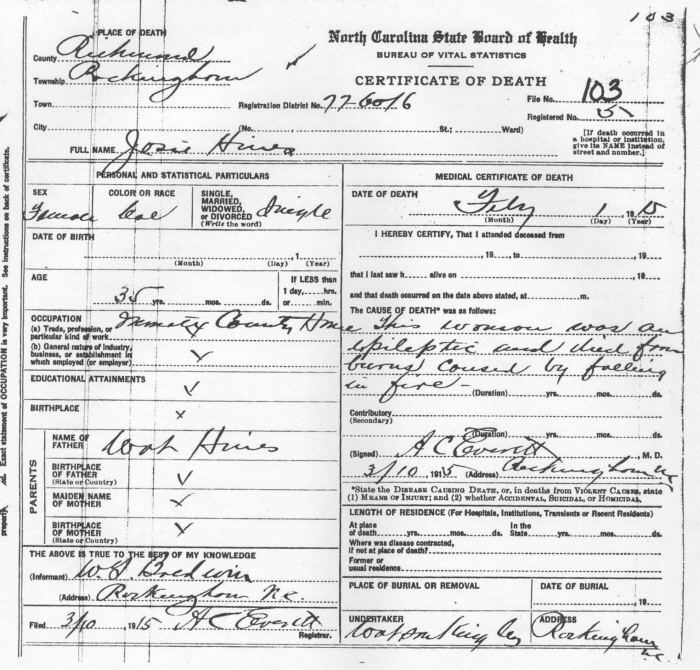 103
PLACE OF DEATH
County Richmond
Township Rockingham
Town
City
North Carolina State Board of Health
BUREAU OF VITAL STATISTICS
CERTIFICATE OF DEATH
Registration District No. 77-6016
File No. 103
Registered No. 5
(No. St.; Ward)
[If death occurred in
a hospital or institution,
give its NAME instead of
street and number.]
FULL NAME Josie Hines
PERSONAL AND STATISTICAL PARTICULARS
SEX
Female
COLOR OR RACE
Col
SINGLE,
MARRIED,
WIDOWED,
or DIVORCED
(Write the word)
Single
DATE OF BIRTH
, 1
(Month) (Day) (Year)
AGE
35 yrs. mos. ds.
If LESS than
1 day, hrs.
or min.
OCCUPATION
(a) Trade, profession, or
particular kind of work
Inmate County Home
(b) General nature of industry,
business, or establishment in
which employed (or employer)
EDUCATIONAL ATTAINMENTS
BIRTHPLACE
PARENTS
NAME OF
FATHER
Hines
BIRTHPLACE
OF FATHER
(State or Country)
MAIDEN NAME
OF MOTHER
BIRTHPLACE
OF MOTHER
(State or Country)
THE ABOVE IS TRUE TO THE BEST OF MY KNOWLEDGE
(Informant) Baldwin
(Address) Rockingham N.C.
Filed 3/10 1915 A C Everett
Registrar.
MEDICAL CERTIFICATE OF DEATH
DATE OF DEATH
Feby 1 1915
(Month) (Day) (Year)
I HEREBY CERTIFY, That I attended deceased from
, 19 , to , 19
that I last saw h alive on , 19
and that death occurred on the date above stated, at m.
The CAUSE OF DEATH* was as follows:
This woman was an
epileptic and died from
burns caused by falling
in fire -
(Duration) yrs. mos. ds.
Contributory
(Secondary)
(Duration) yrs. mos. ds.
(Signed) A C Everett, M. D.
3/10 1915 (Address) Rockingham NC
*State the DISEASE CAUSING DEATH, or, in deaths from VIOLENT CAUSES, state
(1) MEANS OF INJURY; and (2) whether ACCIDENTAL, SUICIDAL, or HOMICIDAL.
LENGTH OF RESIDENCE (For Hospitals, Institutions, Transients or Recent Residents)
At place
of death yrs. mos. ds.
In the
State yrs. mos. ds.
Where was disease contracted,
if not at place of death?
Former or
usual residence
PLACE OF BURIAL OR REMOVAL
DATE OF BURIAL
, 19
UNDERTAKER
Watson King
ADDRESS
Rockingham
NC
Exact statement of OCCUPATION is very important. See instructions on back of certificate.